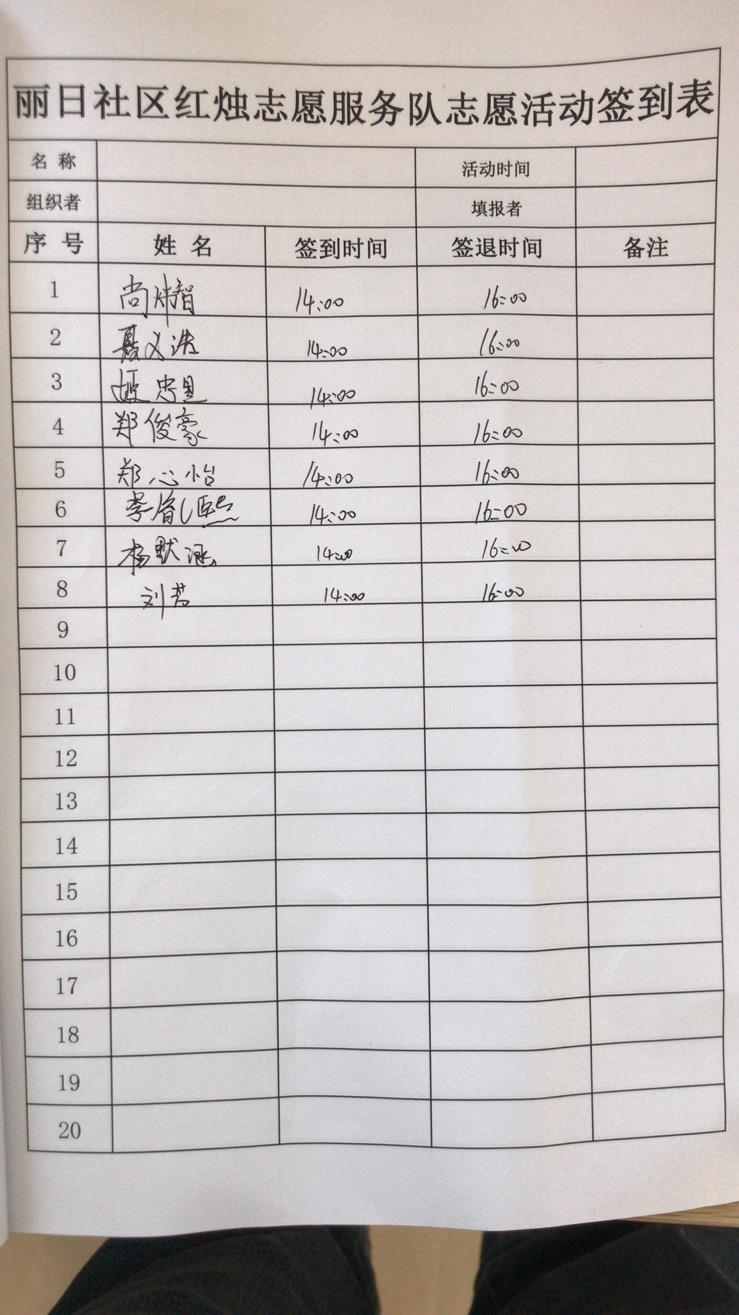 丽日社区红烛志愿服务队志愿活动签到表
名 称 活动时间
组织者 填报者
序 号 姓 名 签到时间 签退时间 备注
1 尚炜智 14:00 16:00
2 聂义浩 14:00 16:00
3 姬忠 14:00 16:00
4 郑俊豪 14:00 16:00
5 郑心怡 14:00 16:00
6 李睿熙 14:00 16:00
7 杨默涵 14:00 16:00
8 刘芳 14:00 16:00
9
10
11
12
13
14
15
16
17
18
19
20